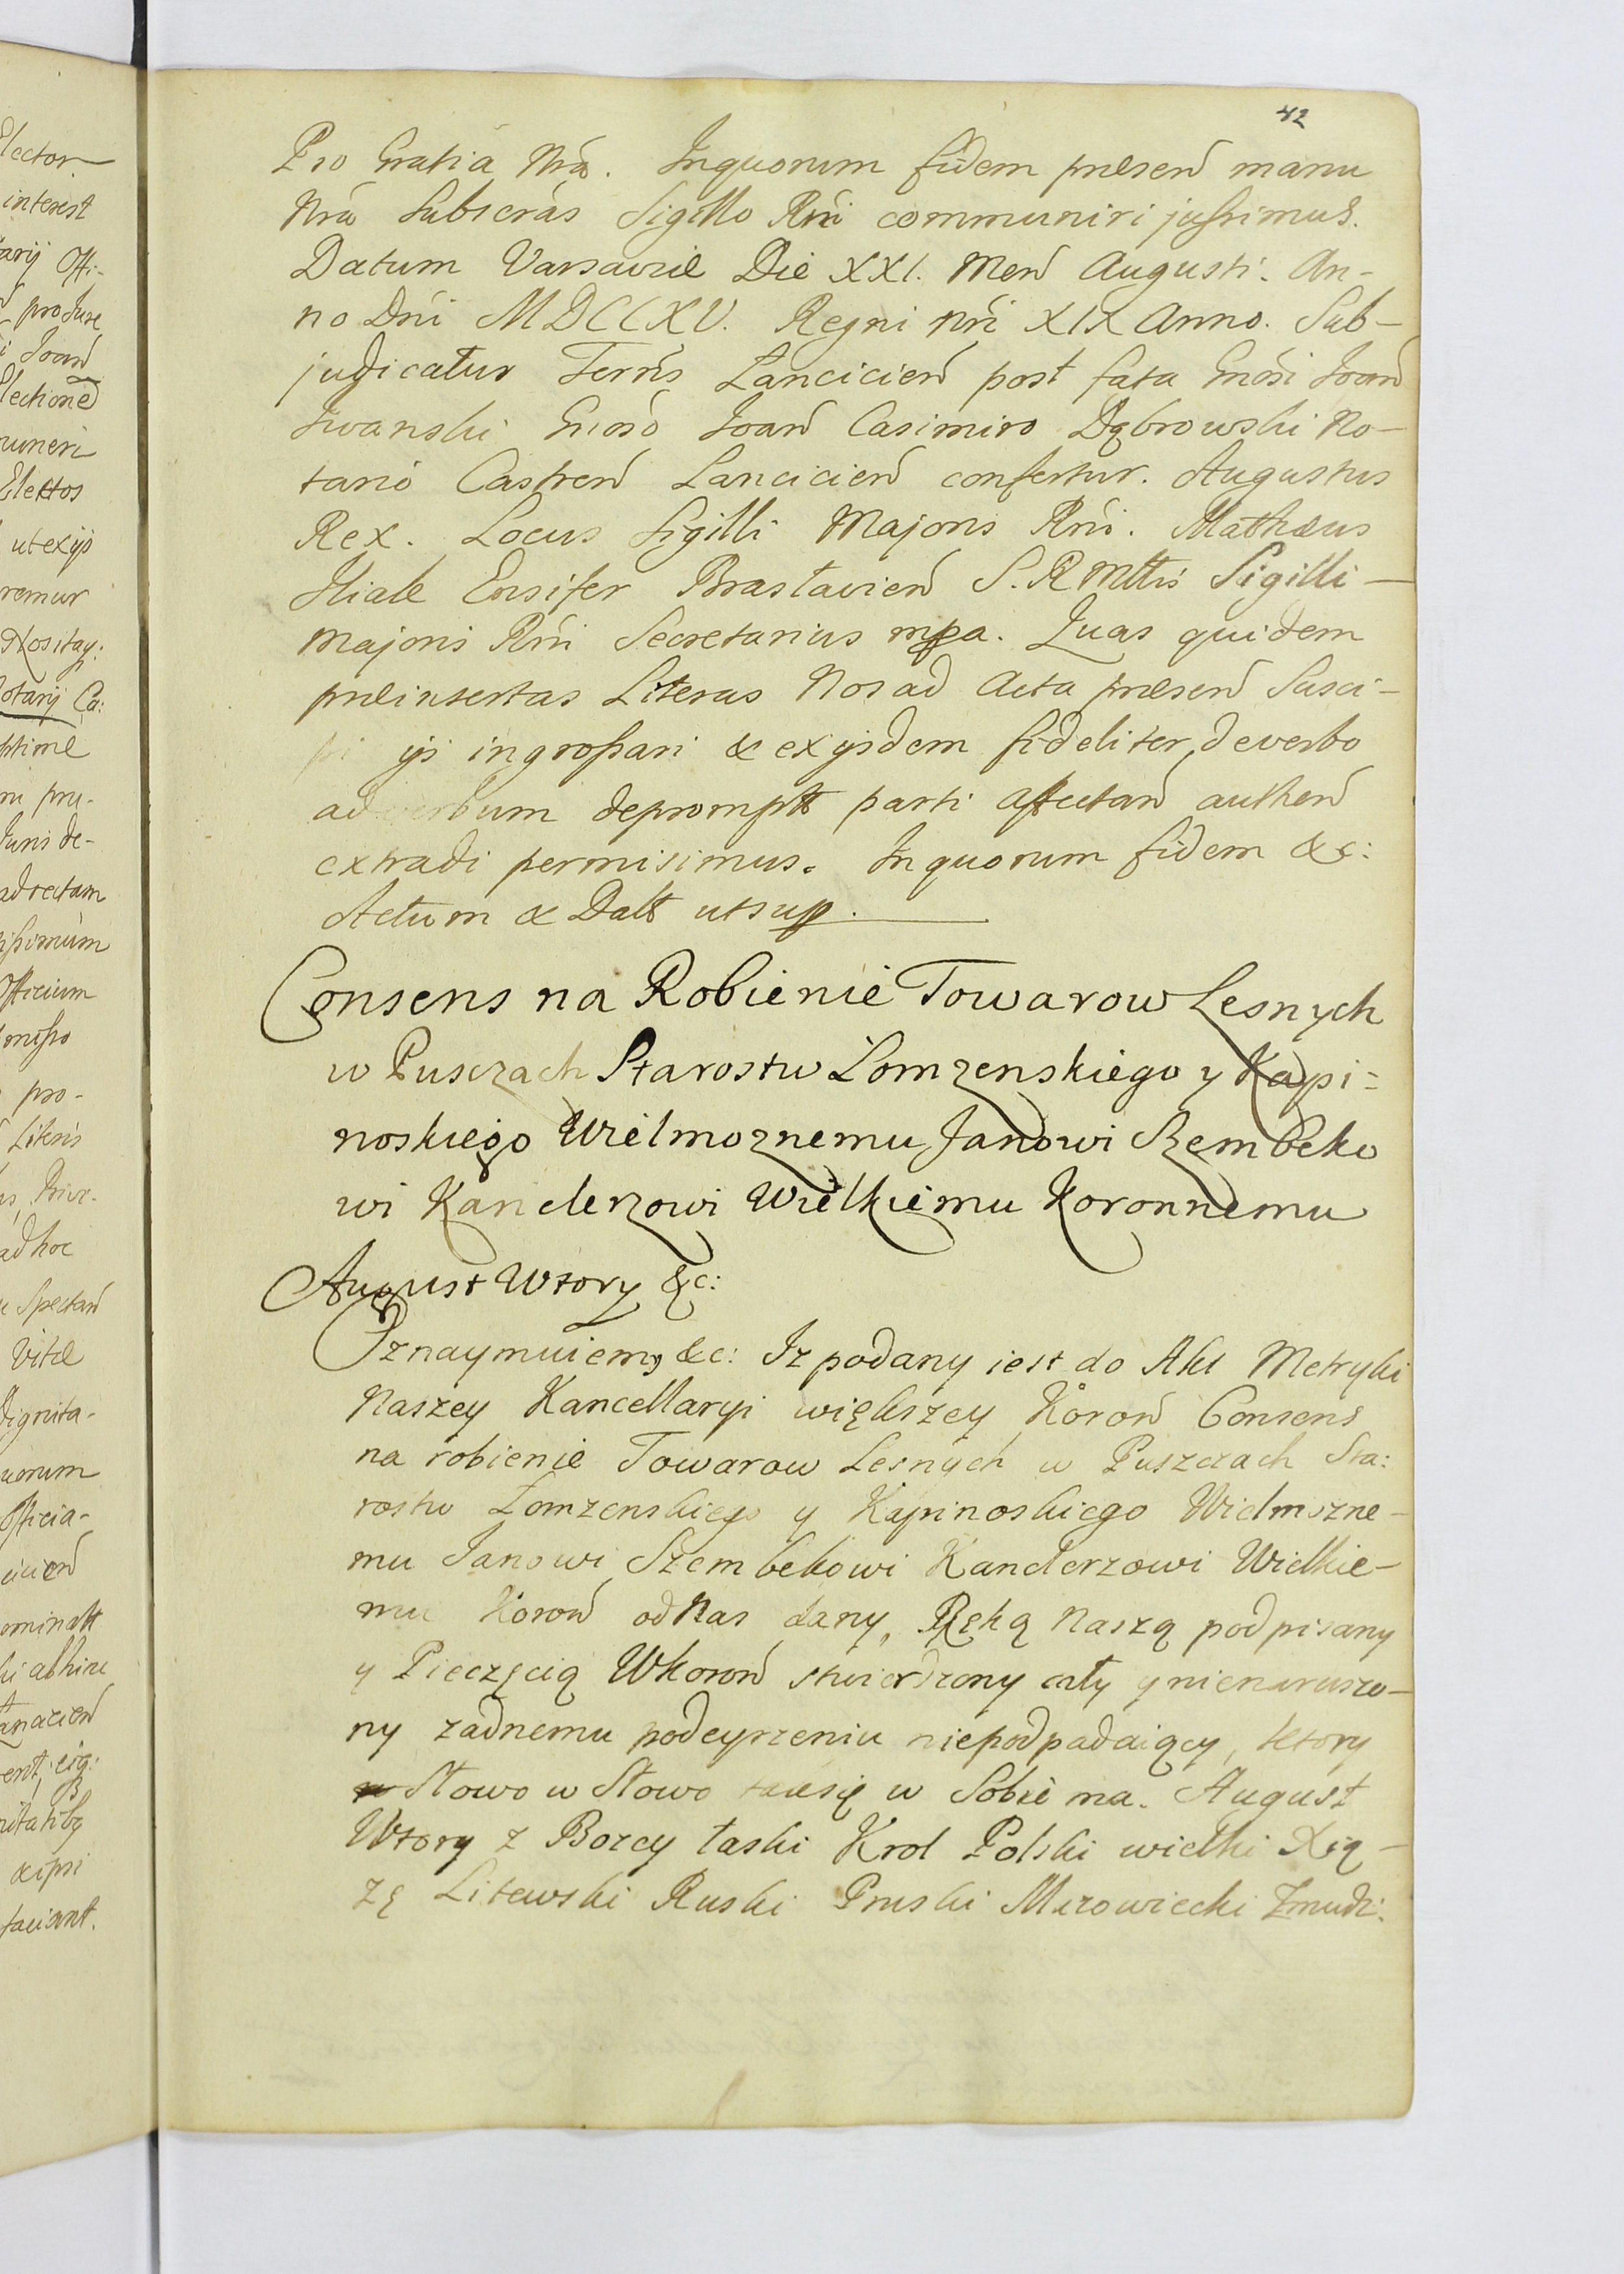 42
Pro Gratia Nrã. Inquorum fidem præsen manu
Nrã Subscrãs Sigillo Rni communiri jussimus.
Datum Varsaviæ Die XXI. Men Augusti. An-
no Dni MDCCXV. Regni Nri XIX Anno. Sub-
judicatus Terris Lancicien post fata Gnosi Joan
Iwanski Gnoso Joan Casimiro Dąbrowski No-
tario Castren Lancicien confertur. Augustus
Rex. Locus Sigilli Majoris Rni. Mathæus
Ensifer Brasłavien S. R Mttis Sigilli
Majoris Rni Secretarius mpa. Quas quidem
præinsertas Literas Nos ad Acta præsen Susci-
pi ijs ingrossari & exijsdem fideliter, deverbo
ad verbum deprompt parti affectan authen
extradi permisimus. Inquorum fidem &c:
Actum & Datt utsup.
Consens na Robienie Towarow Lesnych
w Pusczach Starostw Łomzenskiego y Kapi=
noskiego Wielmoznemu Janowi Szembeko
wi Kanclerzowi Wielkiemu Koronnemu
August Wtory &c:
Oznaymuiemy &c: Iz podany iest do Akt Metryki
Naszey Kancellaryi większey Koron Consens
na robienie Towarow Lesnych w Puszczach Sta:
rostw Łomzenskiego y Kapinoskiego Wielmozne-
mu Janowi Szembekowi Kanclerzowi Wielkie-
mu Koron od Nas dany, Ręką Naszą podpisany
y Pieczęcią WKoron stwierdzony cały y nienaruszo-
ny zadnemu podeyrzeniu niepodpadaiący, ktory
Słowo w Słowo taksię w Sobie ma. August
Wtory z Bozey łaski Krol Polski wielki Xią-
zę Litewski Ruski Pruski Mazowiecki Zmudz:
lector
interest
Offi-
pro Jure
Joan
lectione
muneri
Elektos
utexijs
remur
otarij Ca:
ptime
Juris de-
adrectam
Officium
pro-
Literis
ad hoc
Spectan
Vitæ
Dignita-
uorum
Officia-
ominatt
abhinc